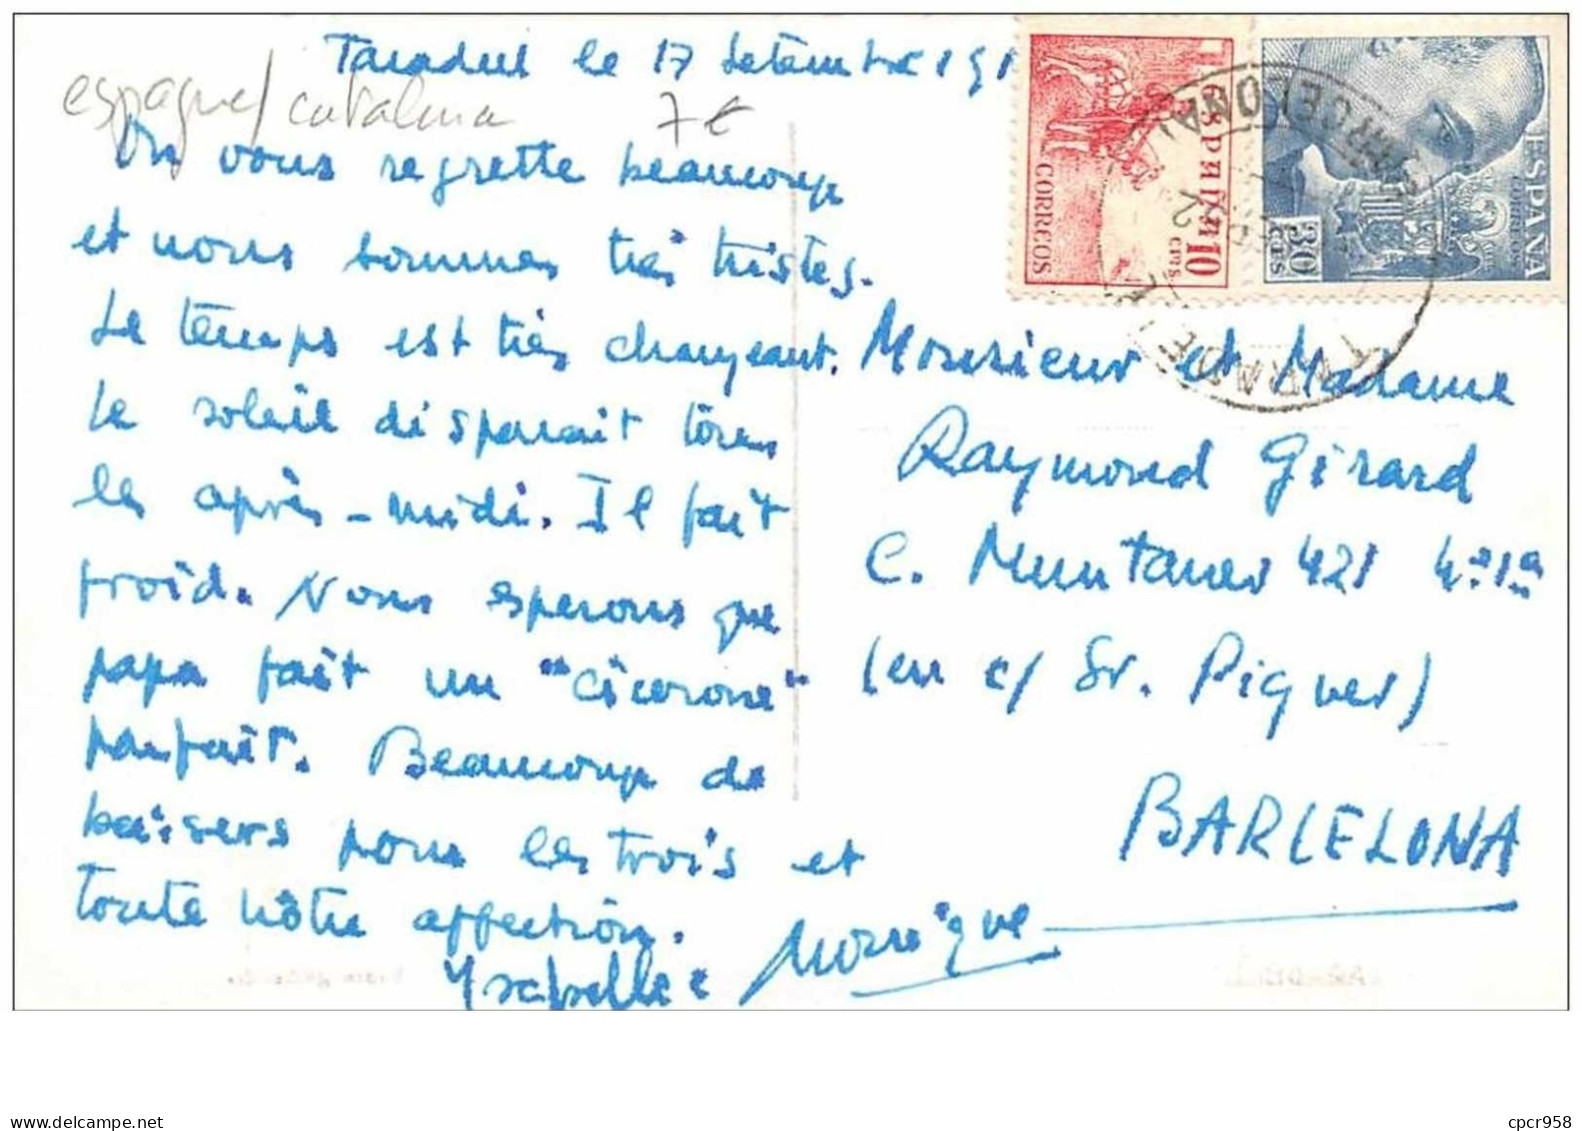 Taradell le 17 Setembre 191
espagne/catalina 7€
On vous regrette beaucoup
et nous sommes très tristes.
Le temps est très changeant.
Le soleil disparait tous
les après-midi. Il fait
froid. Nous esperons que
papa fait un "cicerone"
parfait. Beaucoup de
baisers pour les trois et
toute nôtre affection.
Ysabelle e Monique
Monsieur et Madame
Raymond Girard
C. Muntaner 421 4º 1ª
(en c/ Sr. Piquer)
BARCELONA
ESPAÑA
CORREOS
10 CTS
ESPAÑA
CORREOS
30 CTS
TARADELL
BARCELONA
cpcr958